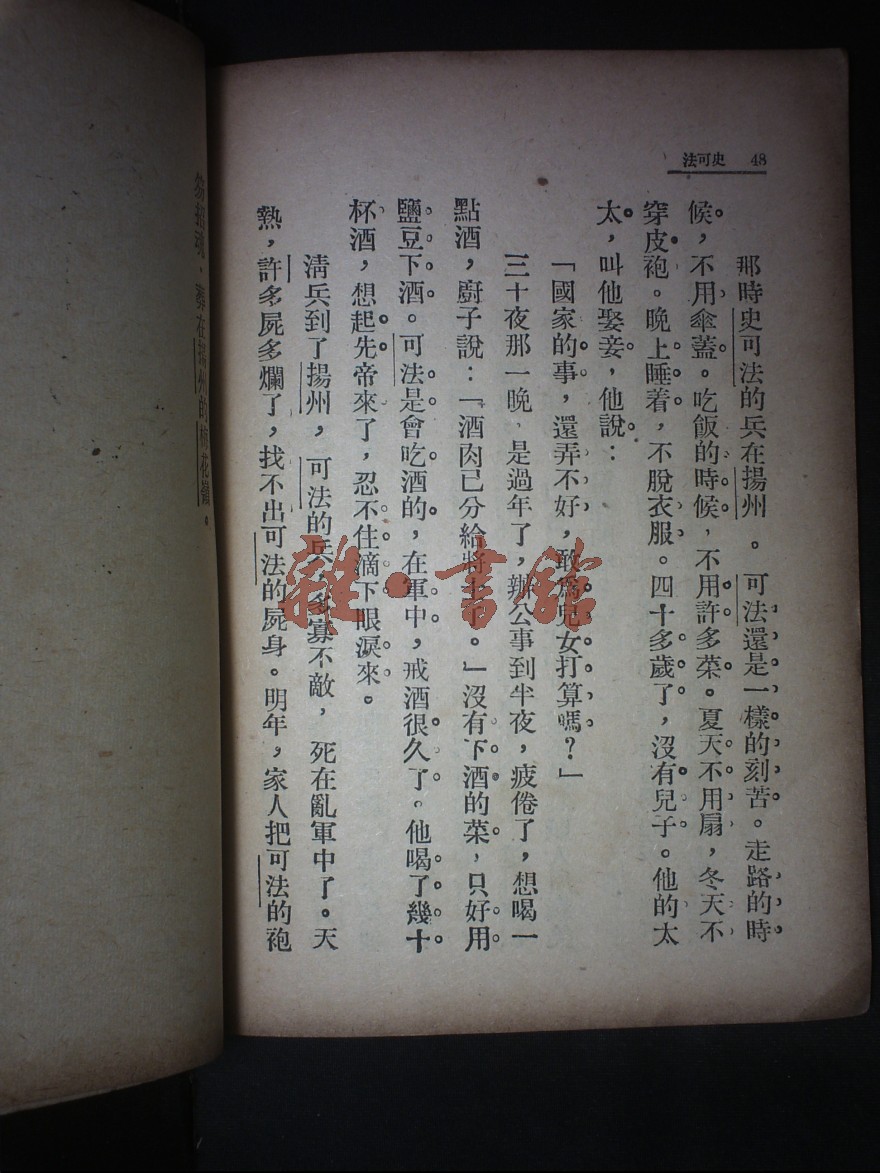 史可法 48
那時史可法的兵在揚州。可法還是一樣的刻苦。走路的時
候,不用傘蓋。吃飯的時候,不用許多菜。夏天不用扇,冬天不
穿皮袍。晚上睡着,不脫衣服。四十多歲了,沒有兒子。他的太
太,叫他娶妾,他說:
「國家的事,還弄不好,敢爲兒女打算嗎?」
三十夜那一晚,是過年了,辦公事到半夜,疲倦了,想喝一
點酒,廚子說:「酒肉已分給將士了。」沒有下酒的菜,只好用
鹽豆下酒。可法是會吃酒的,在軍中,戒酒很久了。他喝了幾十
杯酒,想起先帝來了,忍不住滴下眼淚來。
清兵到了揚州,可法的兵,多寡不敵,死在亂軍中了。天
熱,許多屍多爛了,找不出可法的屍身。明年,家人把可法的袍
笏招魂,葬在揚州的梅花嶺。
雜·書館